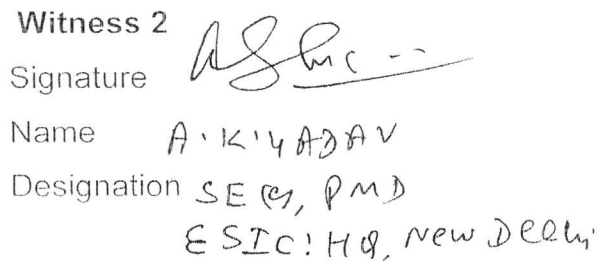 Witness 2
Signature
Name A.K.YADAV
Designation SE (C), PMD
ESIC! HQ, New Delhi